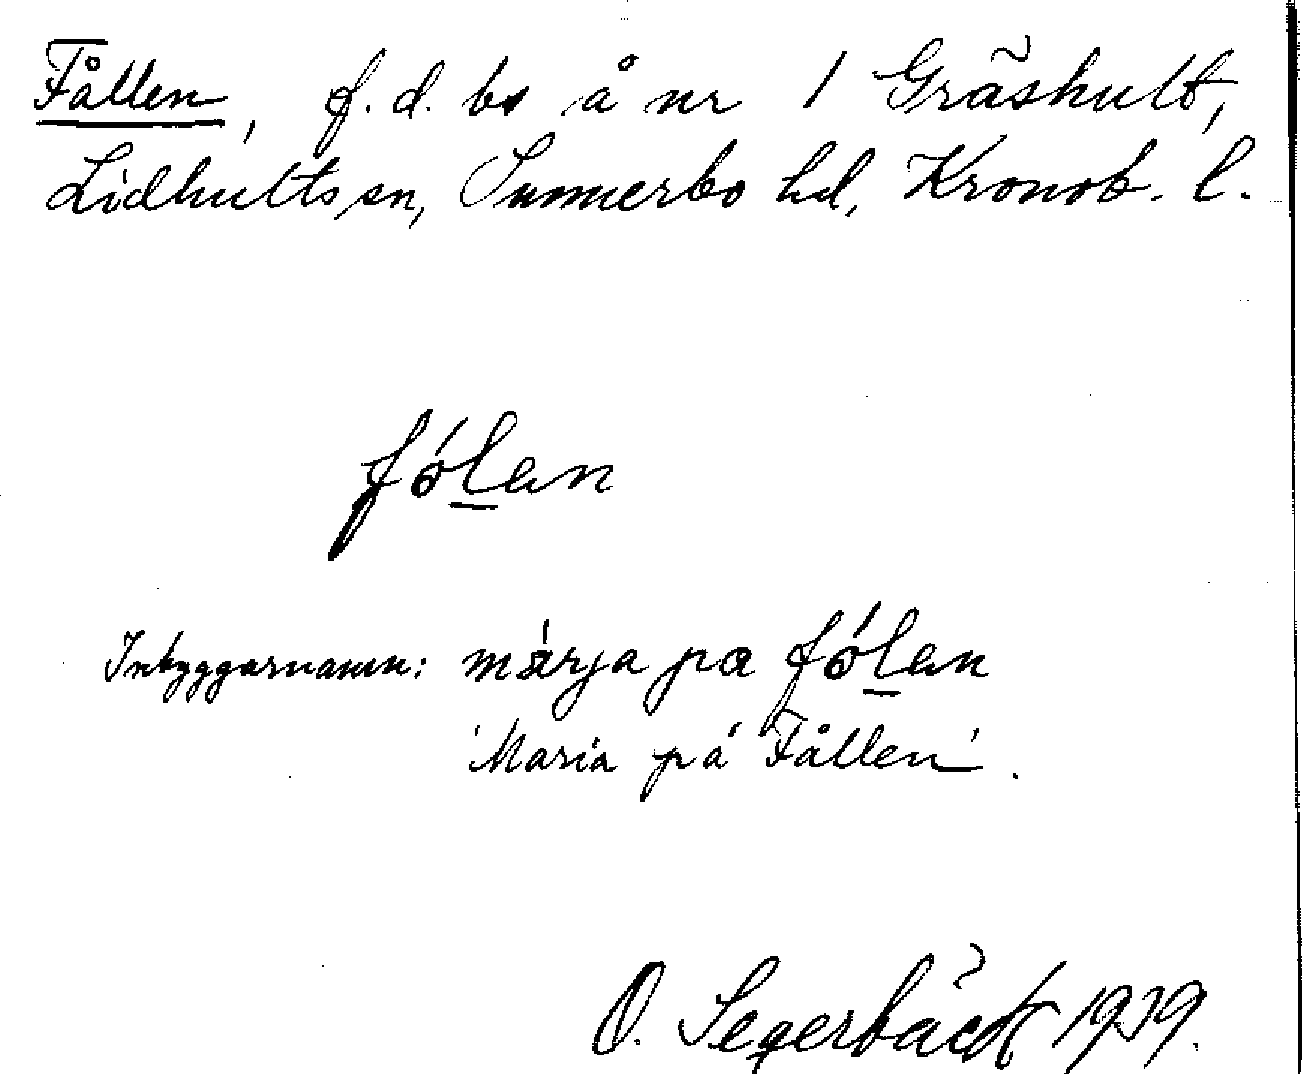 Fållen, f.d. bs å nr 1 Gräshult,
Lidhults sn, Sunnerbo hd, Kronob. l.
fó̱len
Inbyggarnamn: márja pa fólen
'Maria på Fållen'.
O. Segerbäck 1939.